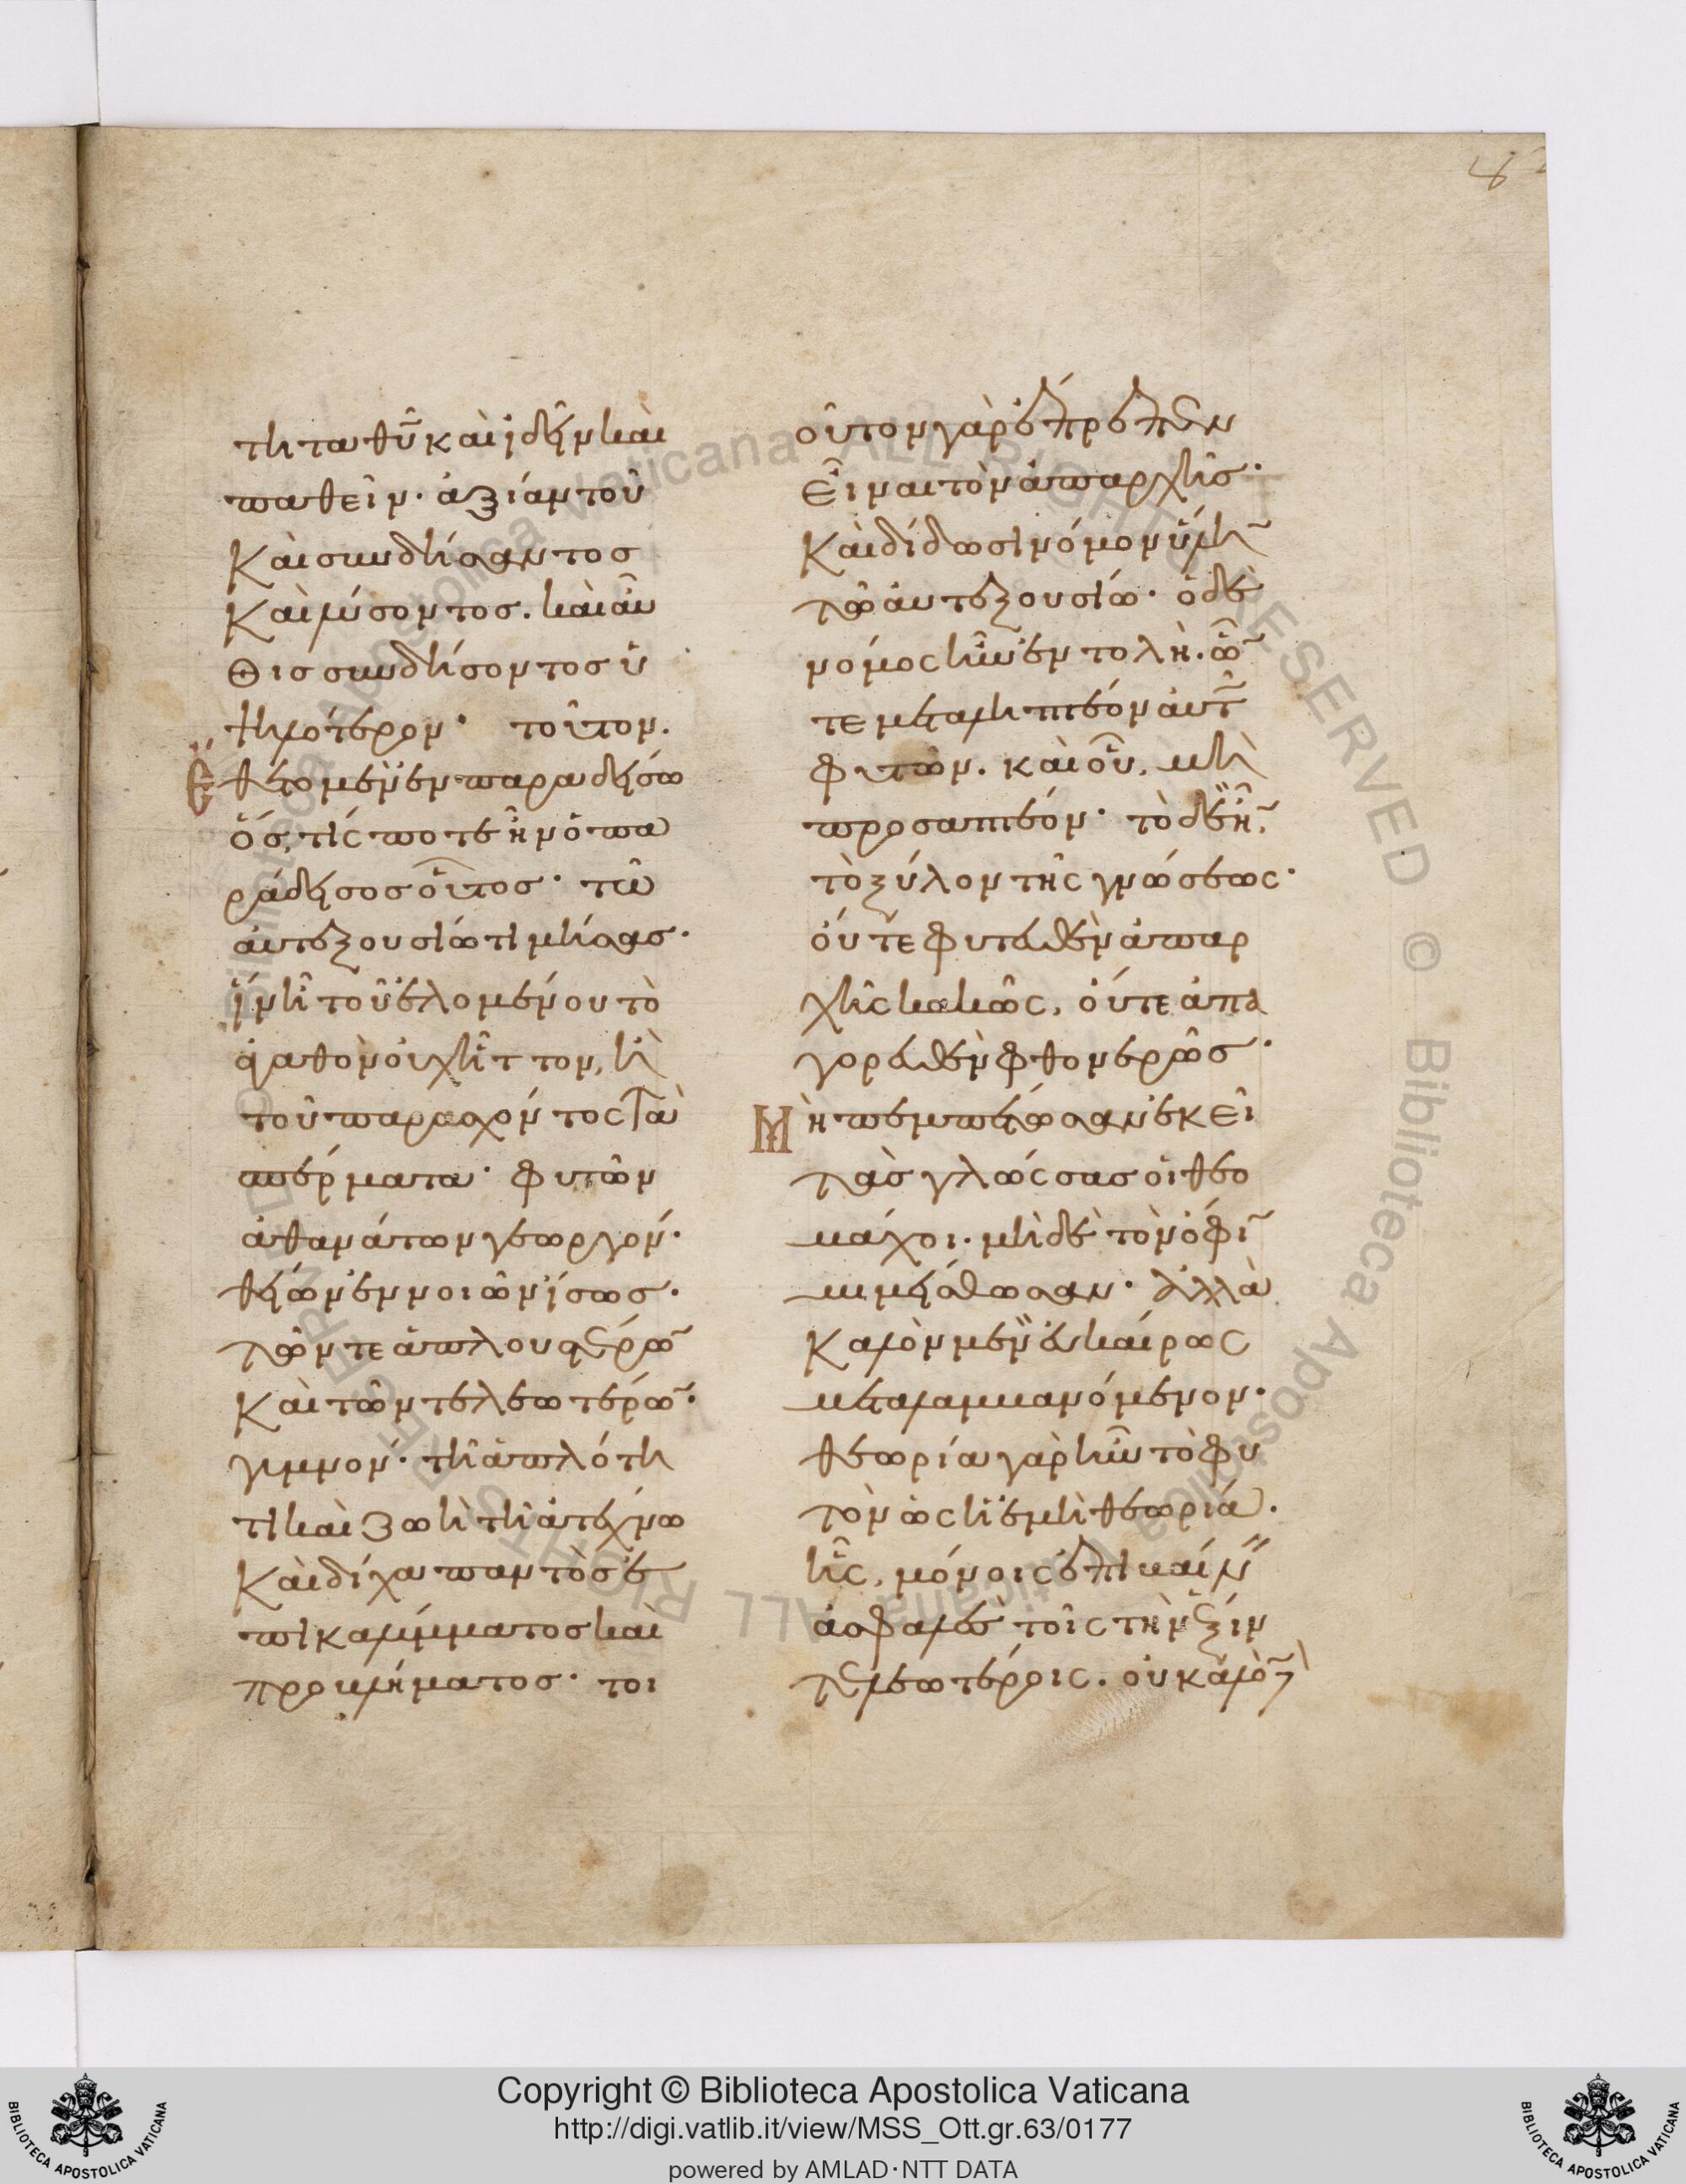 τητα θυ̅ καὶ ἰδεῖν καὶ
παθεῖν· ἀξίαν τοῦ
καὶ συνδήσαντος
καὶ λύσοντος. καὶ αὖ
θις συνδήσοντος ὑ
ψηλότερον· τοῦτον.
ἔθετο μὲν ἐν παραδείσω
ὅς, τίς ποτε ἦν ὁ πα
ράδεισος οὗτος· τῶ
αὐτεξουσίω τιμήσας·
ἵν' ἦ τοῦ ἑλομένου τὸ
ἀγαθὸν οὐχ ἧττον, ἢ
τοῦ παρασχόντος τὰ
σπέρματα· φυτῶν
ἀθανάτων γεωργόν·
θείων ἐννοιῶν ἴσως·
τῶν τε ἁπλουστέρω̅
καὶ τῶν τελεωτέρω̅·
γυμνον· τῆ ἁπλότη
τι καὶ ζωῆ τῆ ἀτέχνω
καὶ δίχα παντὸς ἐ
πικαλύμματος καὶ
προβλήματος· τοι
οῦτον γὰρ ἔπρεπεν
εἶναι τὸν ἀπαρχῆς·
καὶ δίδωσι νόμον ὕλη̅
τῶ αὐτεξουσίω· ὁ δὲ
νόμος ἦν ἐντολὴ. ὧ̅
τε μεταληπτέον αὐτ
φυτῶν. καὶ οὗ, μὴ
προσαπτέον· τὸ δὲ ἦ̅,
τὸ ξύλον τῆς γνώσεως·
οὔτε φυτευθὲν ἀπαρ
χῆς κακῶς, οὔτε ἀπα
γορευθὲν φθονερῶς·
Μὴ πεμπέτωσαν ἐκεῖ
τὰς γλώσσας οἱ θεο
μάχοι. μὴ δὲ τὸν ὄφι̅
μιμείσθωσαν· ἀλλὰ
καλὸν μὲν εὐκαίρως
μεταλαμβανόμενον·
θεωρία γὰρ ἦν τὸ φυ
τὸν ὡς ἡ ἐμὴ θεωρία.
ἧς, μόνοις ἐπιβαίν
ἀσφαλὲς τοῖς τὴν ἕξιν
τελεωτέροις. οὐ καλὸ̅
Copyright © Biblioteca Apostolica Vaticana
http://digi.vatlib.it/view/MSS_Ott.gr.63/0177
powered by AMLAD·NTT DATA